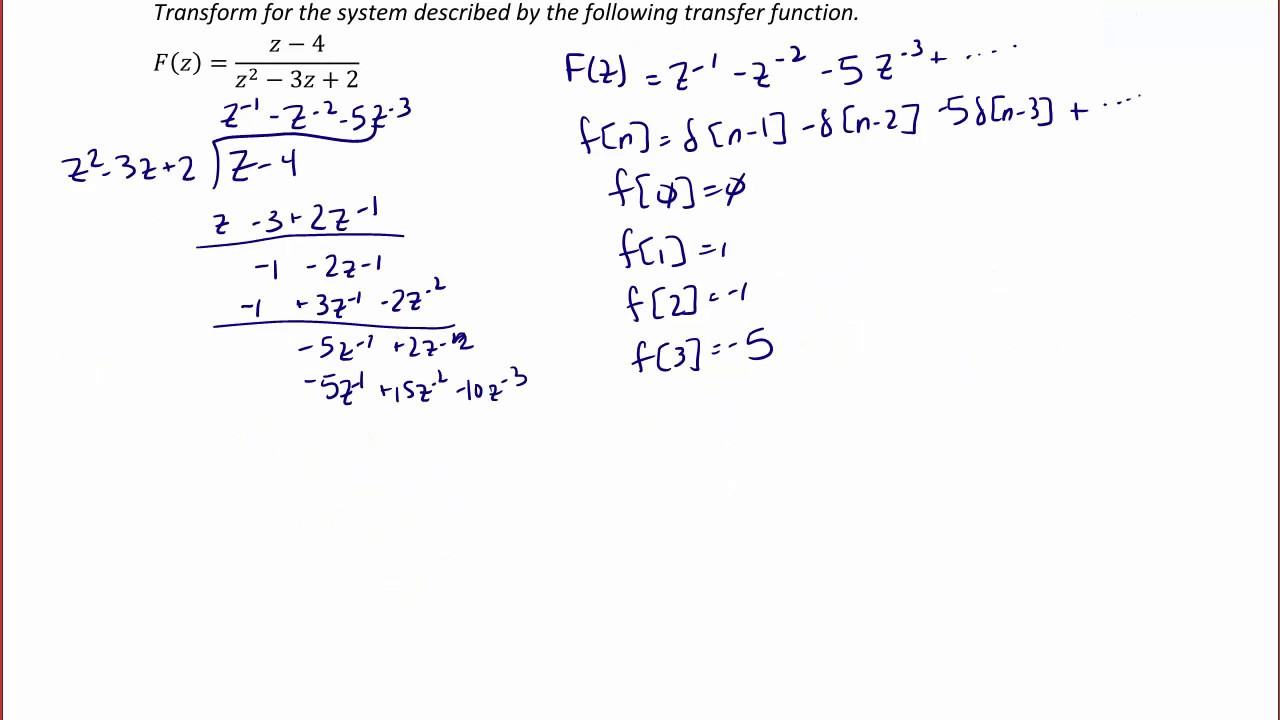 Transform for the system described by the following transfer function.
F(z) = (z − 4)/(z² − 3z + 2)
z⁻¹ - z⁻² - 5z⁻³
z² - 3z + 2 ) z - 4
z - 3 + 2z⁻¹
-1 - 2z-1
-1 + 3z⁻¹ - 2z⁻²
- 5z⁻¹ + 2z-2
- 5z⁻¹ + 15z⁻² - 10z⁻³
F(z) = z⁻¹ - z⁻² - 5z⁻³ + ....
f[n] = δ[n-1] - δ[n-2] - 5δ[n-3] + ....
f[0] = 0
f[1] = 1
f[2] = -1
f[3] = -5